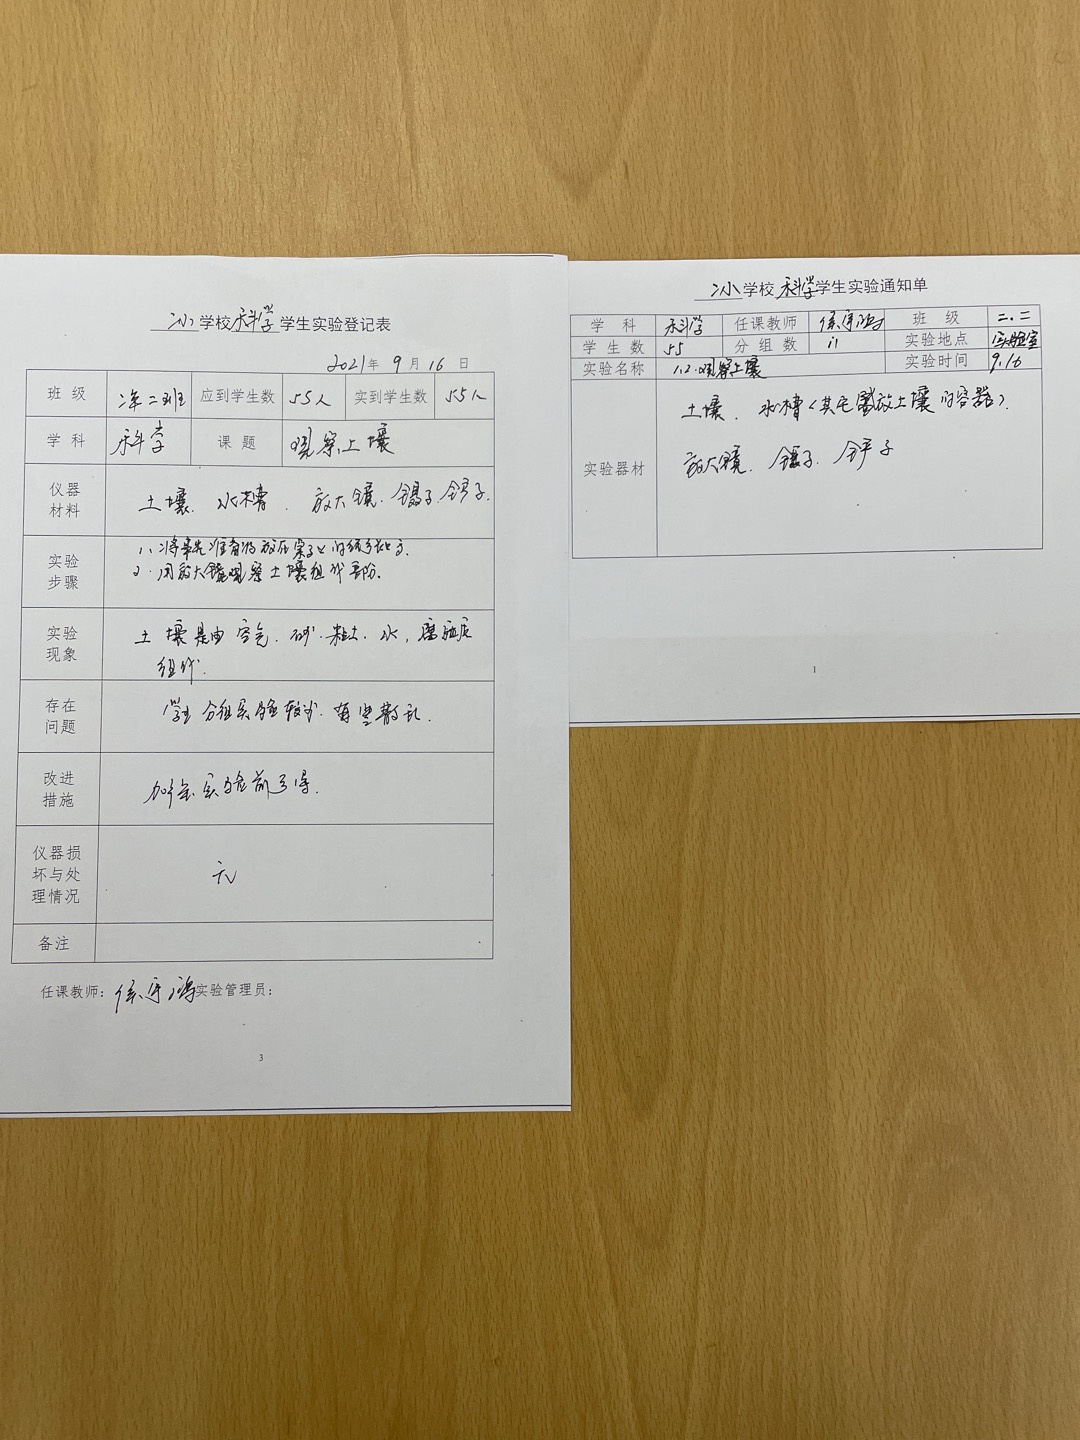 小学校科学学生实验登记表
2021年9月16日
班级 二班 应到学生数 55人 实到学生数 55人
学科 科学 课题 观察土壤
仪器材料 土壤. 水槽. 放大镜. 镊子. 铲子.
实验步骤 1、将事先准备好放在桌子上的
2.用放大镜观察土壤组成部分.
实验现象 土壤是由空气. 砂. 粘土. 水, 腐殖质
组成.
存在问题 学生分组实验较少.
改进措施 加强实验前
仪器损坏与处理情况 无
备注
任课教师: 实验管理员:
3
小学校科学学生实验通知单
学科 科学 任课教师 班级 二.二
学生数 55 分组数 11 实验地点 实验室
实验名称 1.2.观察土壤 实验时间 9.16
实验器材 土壤. 水槽(其它放土壤的容器).
放大镜. 镊子. 铲子
1